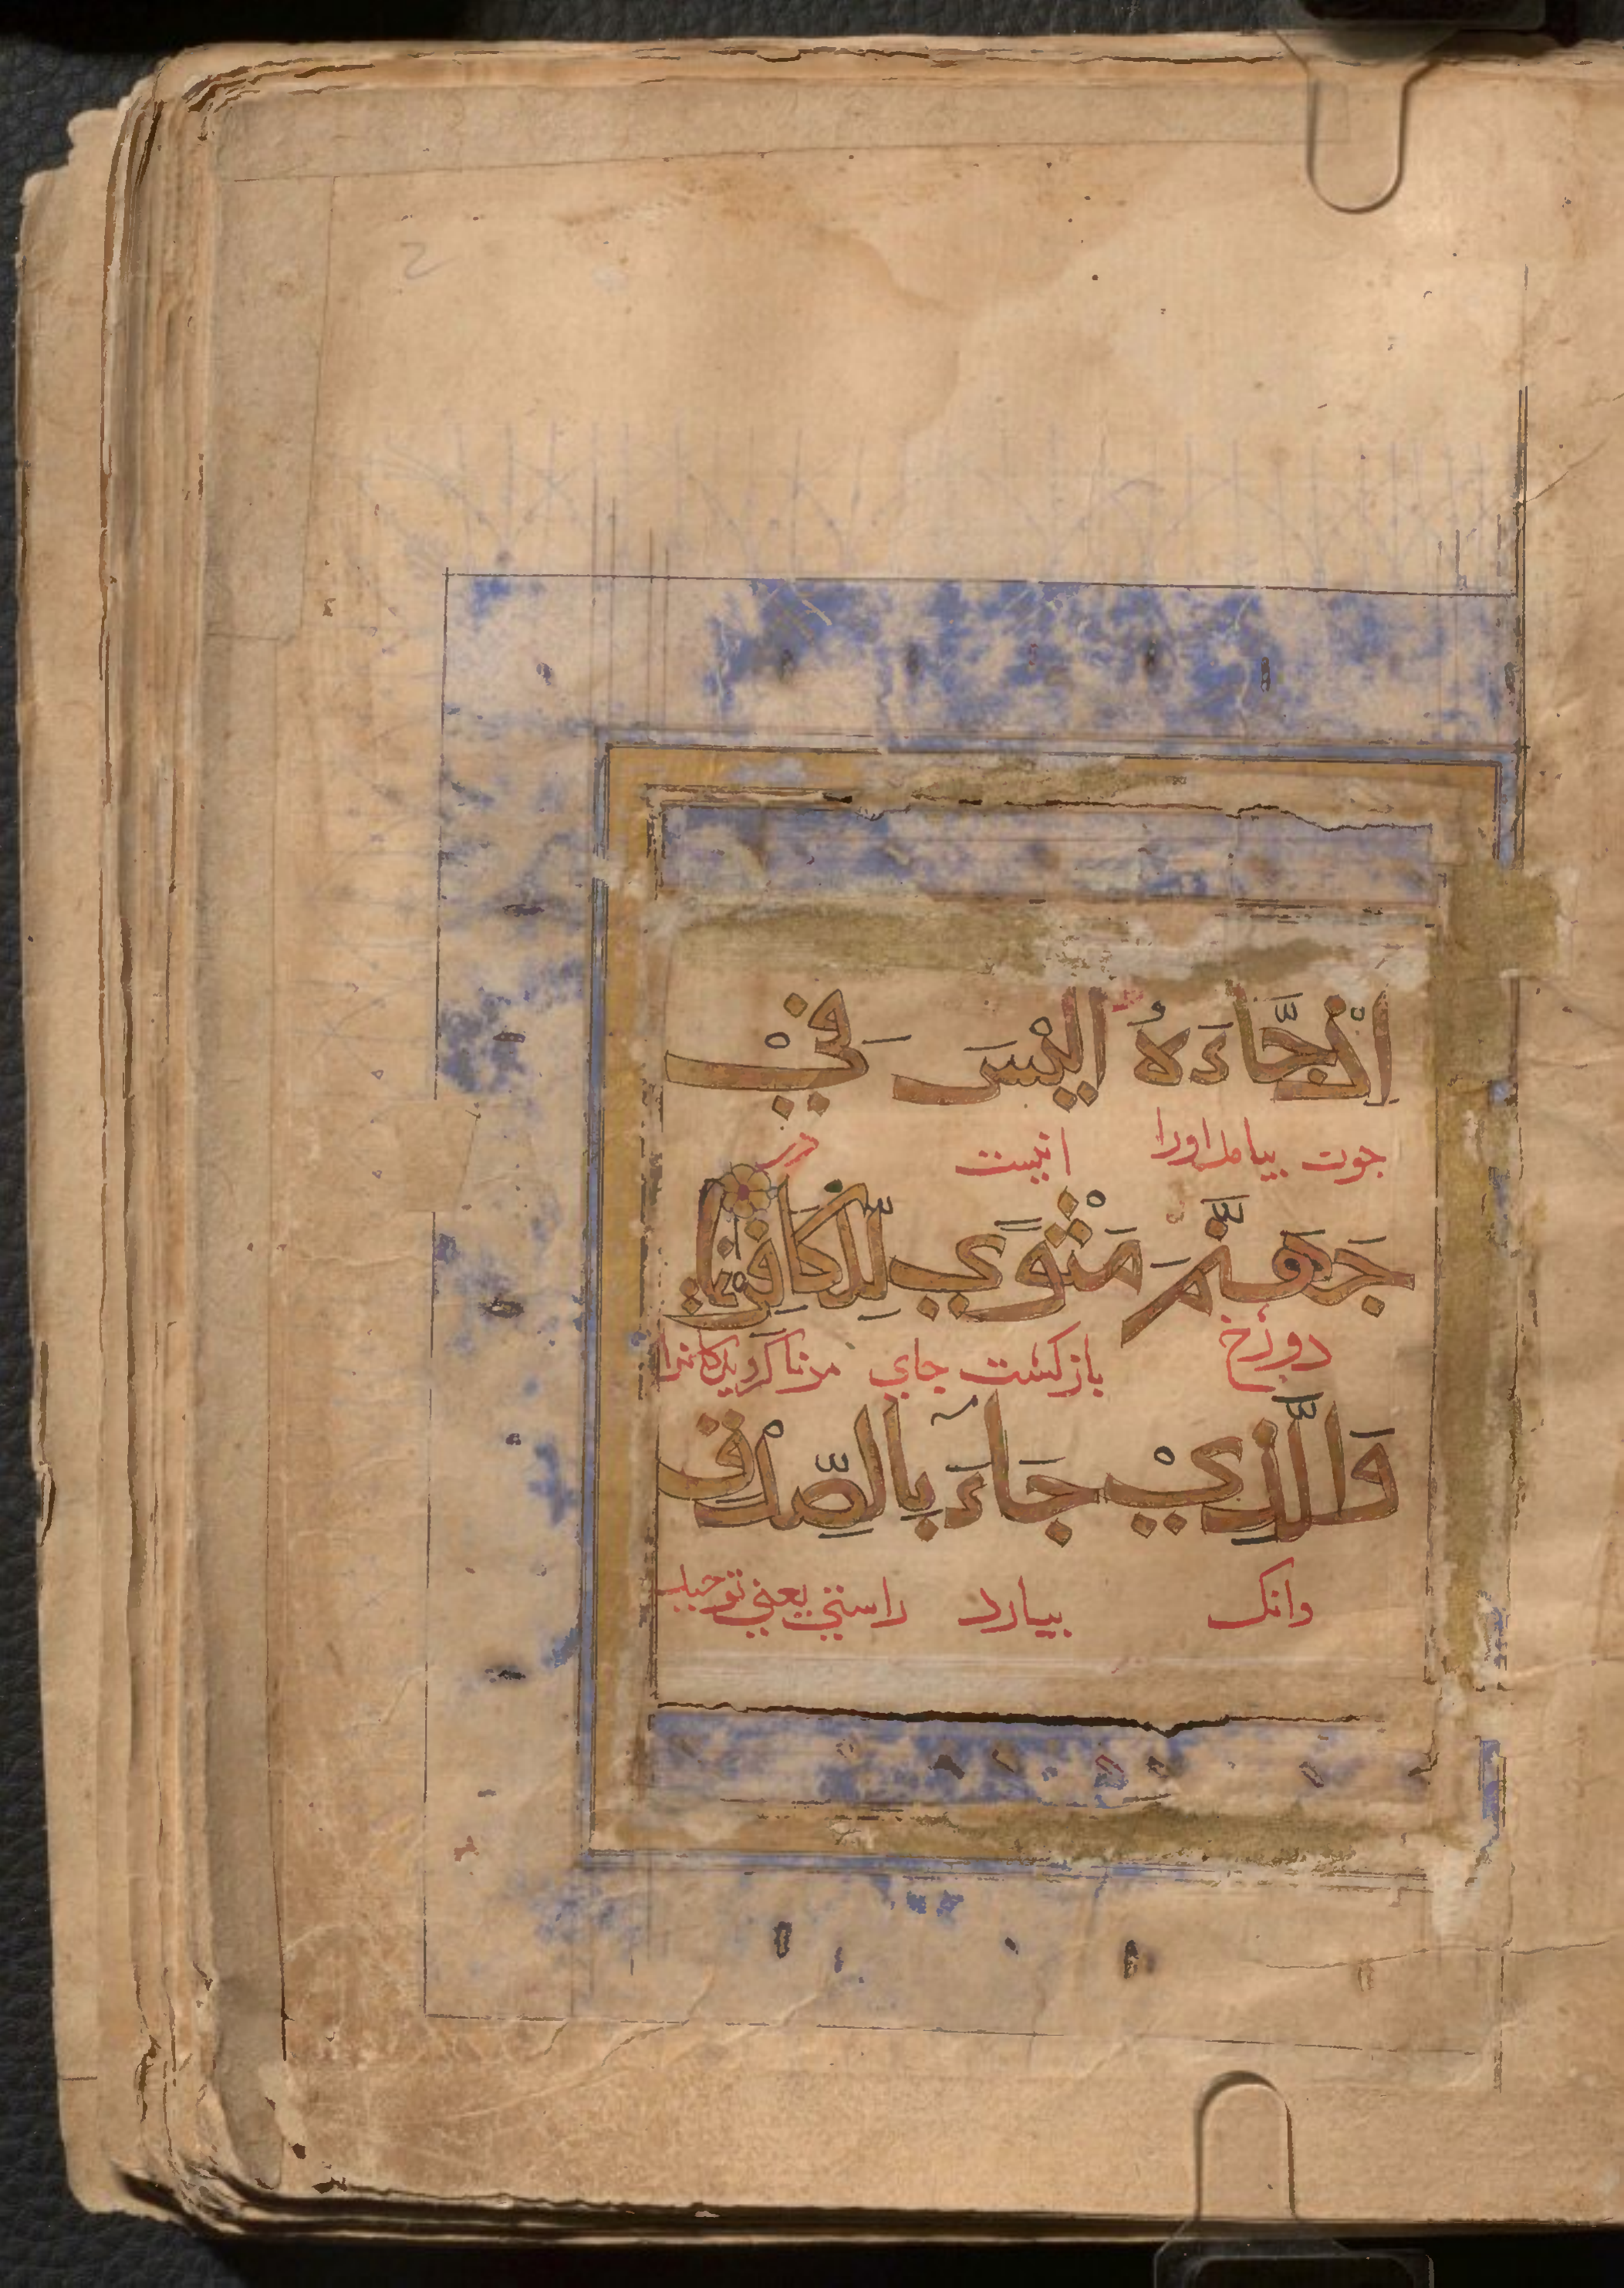 اِذْ جَّاءَهُ اَلَيْسَ فِيْ
جون بیامد اورا انیست در
جَهَنَّمَ مَثْوًي لِّلْكَافِرِيْنَ
دوزخ بازکشت جاي مرناکرویدکانرا
وَالَّذِيْ جَاۤءَ بِالصِّدْقِ
وانک بیارد راستي یعني توحید